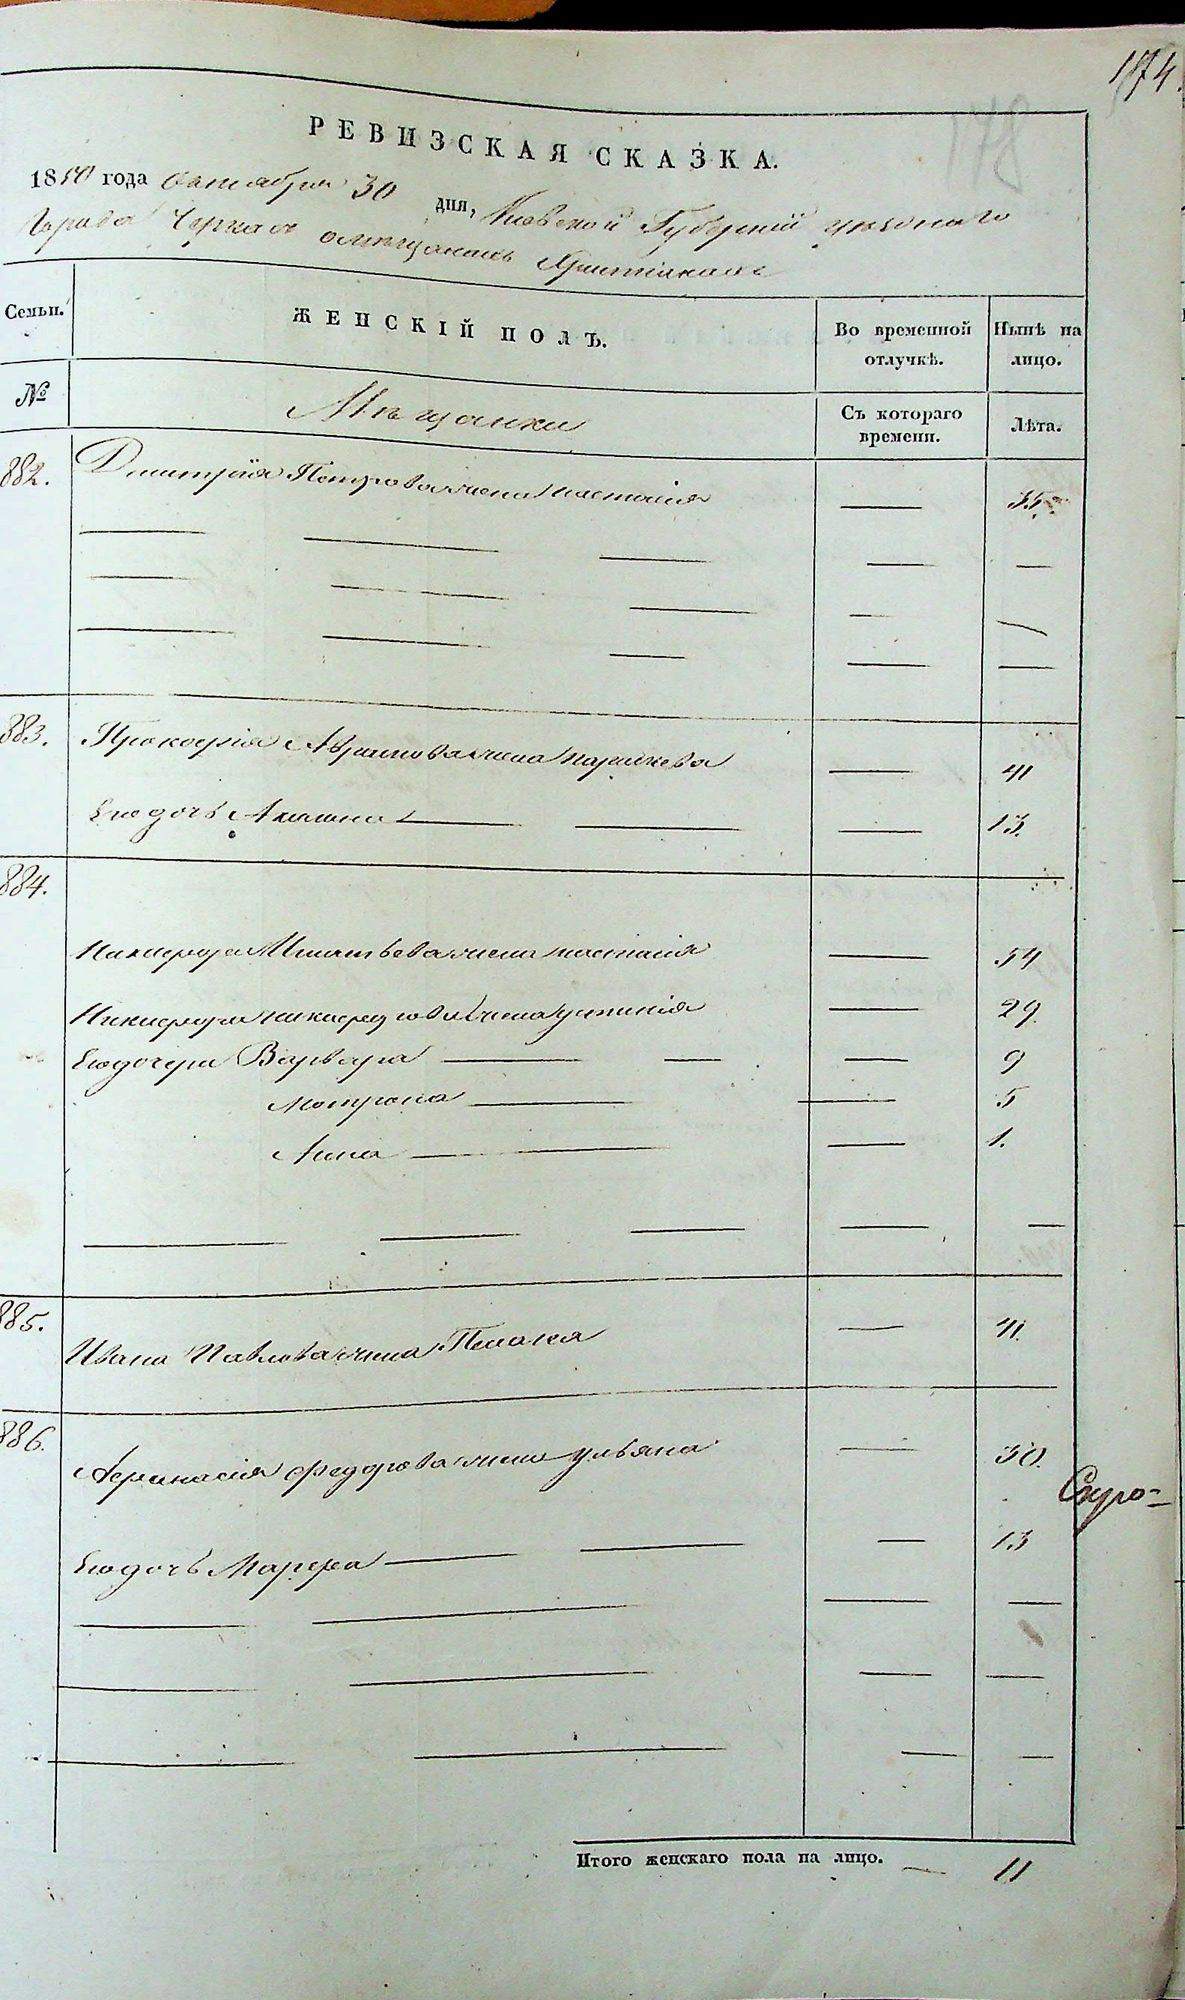 174.
178
РЕВИЗСКАЯ СКАЗКА.
1850 года октября 30 дня, Киевской Губерніи уѣзднаго
Города Черкас омѣщанахъ Христіанахъ
Семьи. ЖЕНСКІЙ ПОЛЪ. Во временной отлучкѣ. Нынѣ на лицо.
№ Мѣщанки Съ котораго времени. Лѣта.
882. Дмитрія Петрова жена настасія — 35
883. Прокофія Аврамова жена параскева — 41
Его дочь Акилина — 13.
884.
Никифора Игнатьева жена настасія — 54
Никифора никифорова жена устинія — 29
Его дочери Варвара — 9
Мотрона — 5
Анна — 1.
885. Ивана Павлова жена Пелагея — 41.
886. Афанасія федорова жена ульяна — 30.
Скро-
Его дочь Марфа — 13
Итого женскаго пола на лицо. — 11